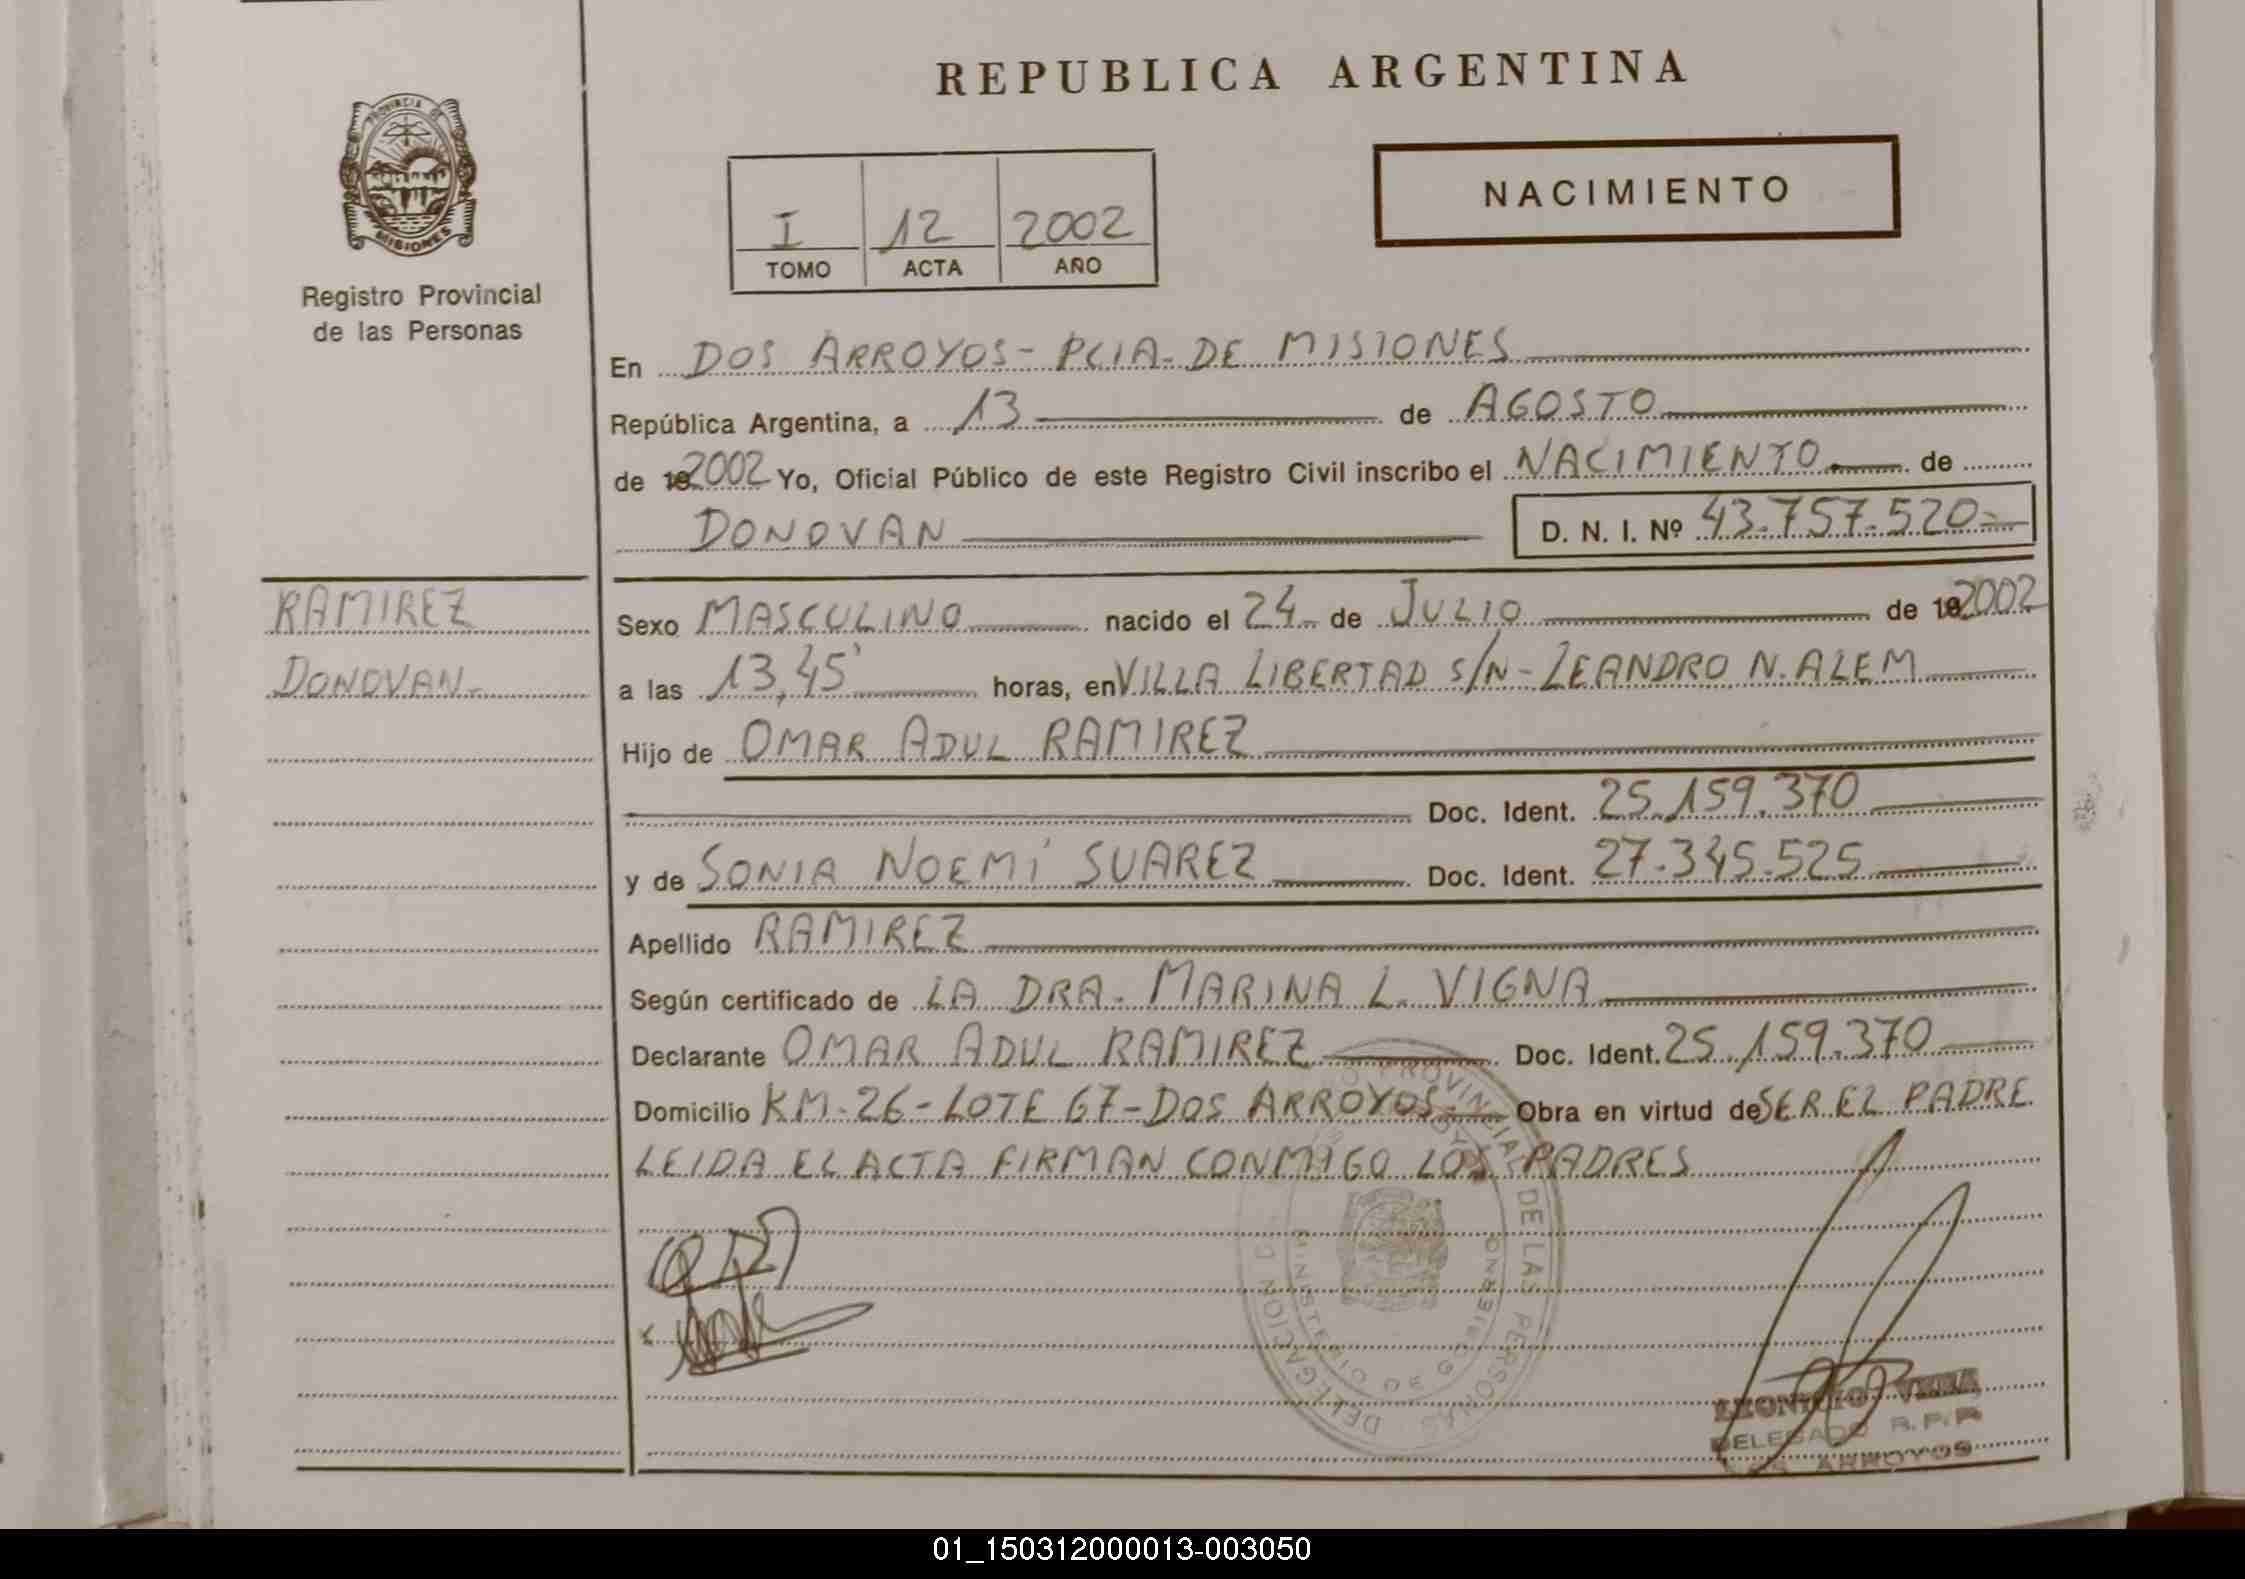 REPUBLICA ARGENTINA
PROVINCIA DE
MISIONES
Registro Provincial
de las Personas
NACIMIENTO
I 12 2002
TOMO ACTA AÑO
En DOS ARROYOS- PCIA. DE MISIONES
República Argentina, a 13 de AGOSTO
de 192002 Yo, Oficial Público de este Registro Civil inscribo el NACIMIENTO de
DONOVAN D. N. I. Nº 43.757.520-
RAMIREZ
DONOVAN-
Sexo MASCULINO nacido el 24 de JULIO de 192002
a las 13,45' horas, en VILLA LIBERTAD S/N- LEANDRO N. ALEM
Hijo de OMAR ADUL RAMIREZ
Doc. Ident. 25.159.370
y de SONIA NOEMí SUAREZ Doc. Ident. 27.345.525
Apellido RAMIREZ
Según certificado de LA DRA. MARINA L. VIGNA
Declarante OMAR ADUL RAMIREZ Doc. Ident. 25.159.370
Domicilio KM-26-LOTE 67-DOS ARROYOS- Obra en virtud de SER EL PADRE
LEIDA EL ACTA FIRMAN CONMIGO LOS PADRES
PROVINCIAL DE LAS PERSONAS
DELEGACION
MINISTERIO DE GOBIERNO
VERA
DELEGADO R.P.P.
ARROYOS
01_150312000013-003050